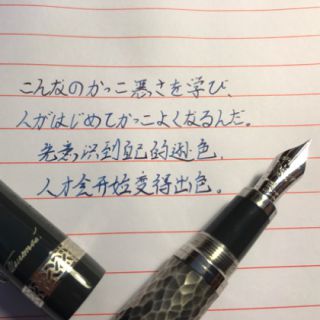 こんなのかっこ悪さを学び、
人がはじめてかっこよくなるんだ。
先意识到自己的逊色,
人才会开始变得出色。